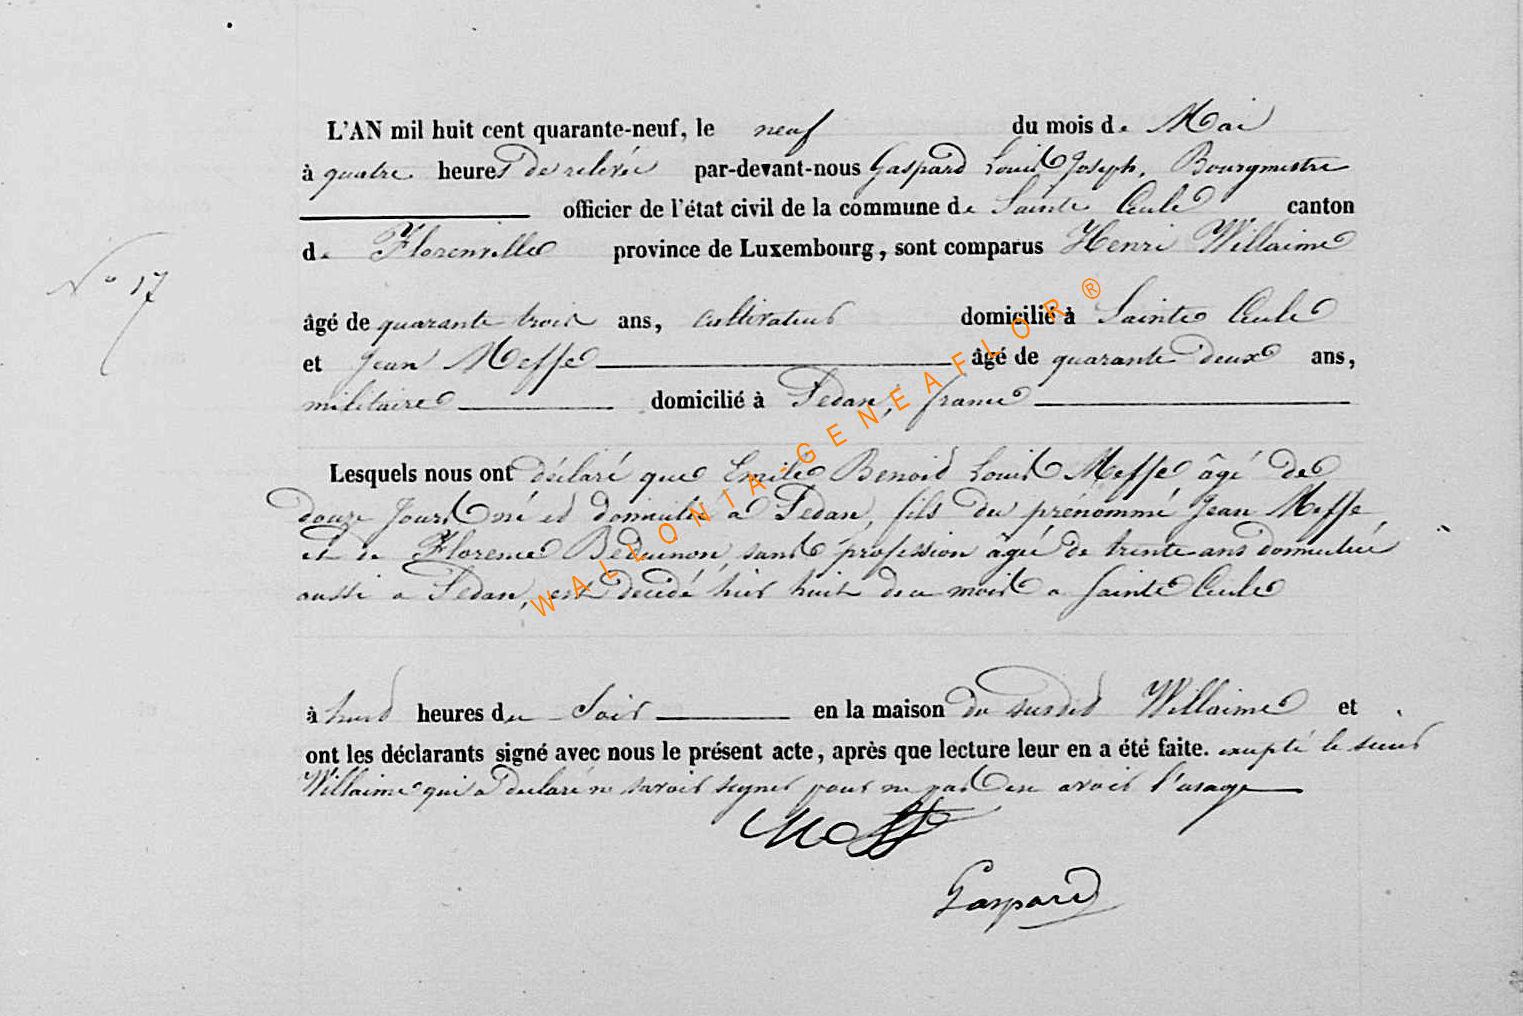 L'AN mil huit cent quarante-neuf, le neuf du mois de Mai
à quatre heures de relevée par-devant-nous Gaspard Louis Joseph, Bourgmestre
officier de l'état civil de la commune de Sainte Cecile canton
de Florenville province de Luxembourg, sont comparus Henri Willaime
N° 17
âgé de quarante trois ans, cultivateur domicilié à Sainte Cecile
et Jean Messe âgé de quarante deux ans,
militaire domicilié à Sedan, france
Lesquels nous ont déclaré que Emile Benoit Louis Messe âgé de
douze Jours né et domicilié à Sedan, fils du prénommé Jean Messe
et de Florence Beduinon, sans profession âgée de trente ans domiciliée
aussi a Sedan, est decidé hier huit du mois a Sainte Cecile
à heures du Soir en la maison du susdit Willaime et
ont les déclarants signé avec nous le présent acte, après que lecture leur en a été faite. excepté le sieur
Willaime qui a declaré ne savoir signer pour ne pas en avoir l'usage
Messe
Gaspard
WALLONIA-GENEAFLOR ®